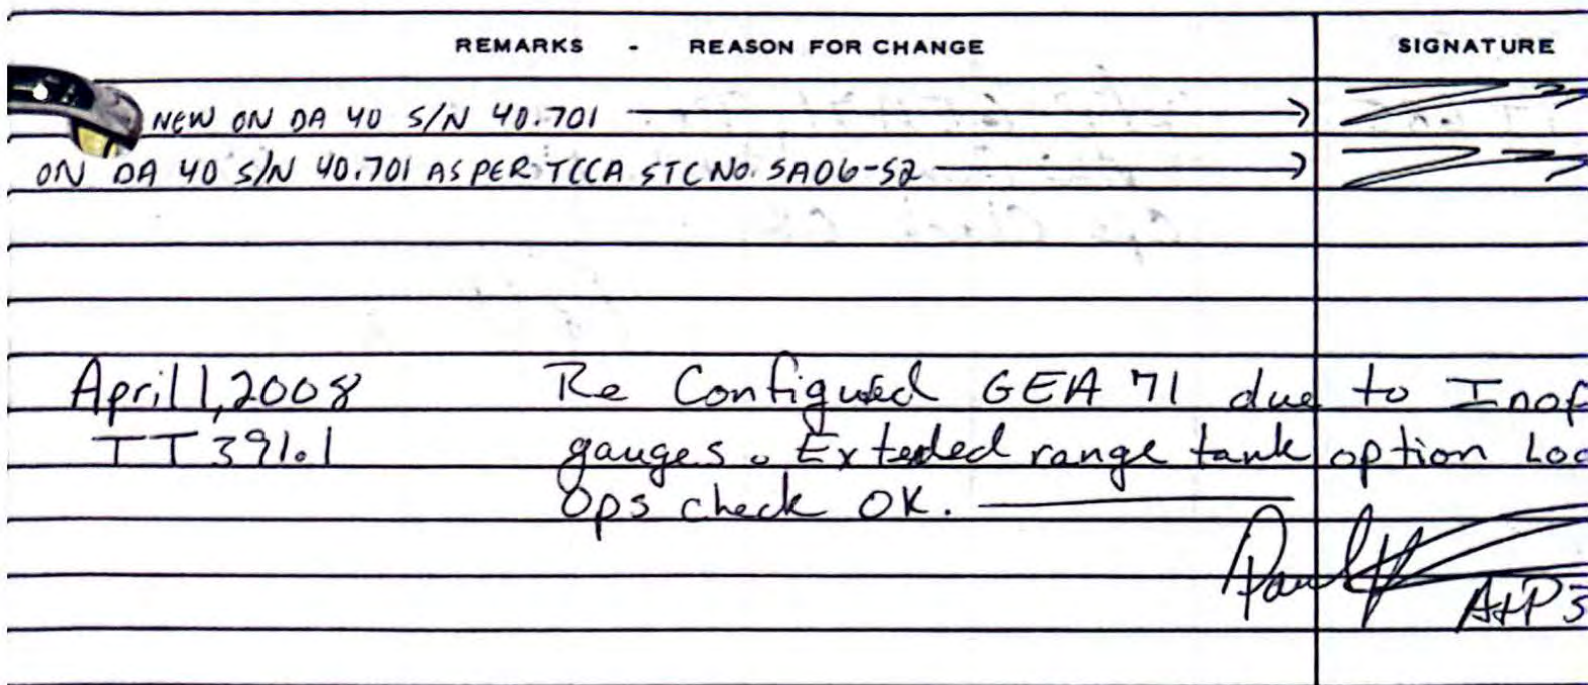 REMARKS - REASON FOR CHANGE SIGNATURE
NEW ON DA 40 S/N 40.701
ON DA 40 S/N 40.701 AS PER TCCA STC NO. SA06-52
April 1, 2008 Re Configured GEA 71 due to Inop
TT 391.1 gauges. Extended range tank option Loa
Ops check OK.
Paul
A+P 3